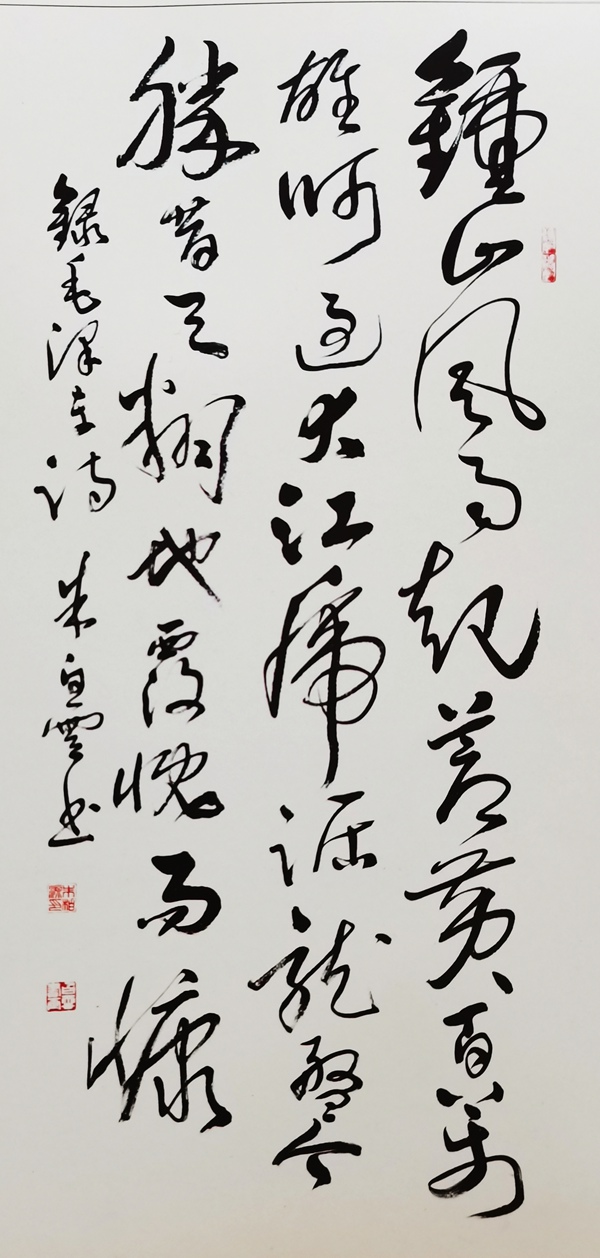 鍾山風雨起蒼黃百萬
雄師過大江虎踞龍盤今
勝昔天翻地覆慨而慷
錄毛澤東詩 朱雲書